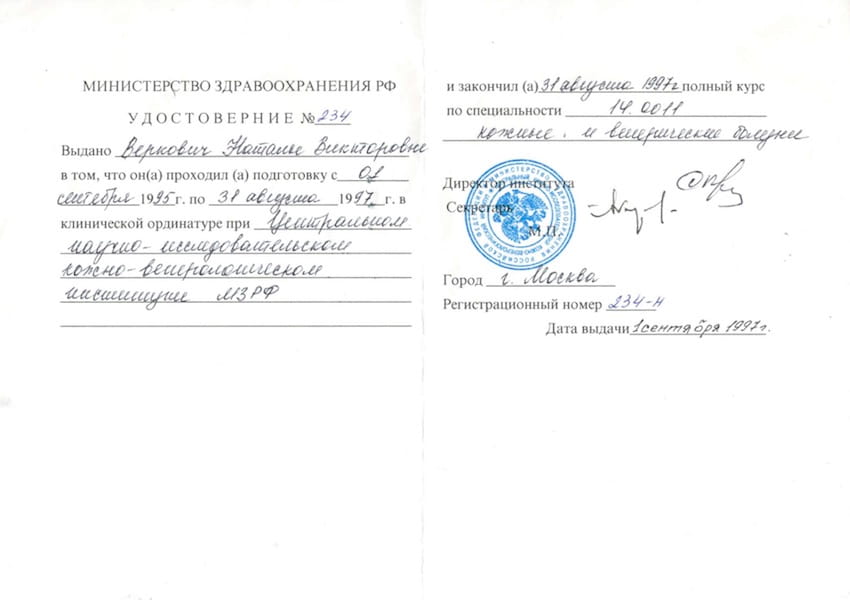 МИНИСТЕРСТВО ЗДРАВООХРАНЕНИЯ РФ
УДОСТОВЕРНИЕ № 234
Выдано Веркович Наталье Викторовне
в том, что он(а) проходил (а) подготовку с 01
сентября 1995 г. по 31 августа 1997 г. в
клинической ординатуре при Центральном
научно-исследовательском
кожно-венерологическом
институте МЗРФ
и закончил (а) 31 августа 1997г полный курс
по специальности 14.0011
кожные и венерические болезни
Директор института
Секретарь
М.П.
Город г. Москва
Регистрационный номер 234-н
Дата выдачи 1 сентября 1997г.